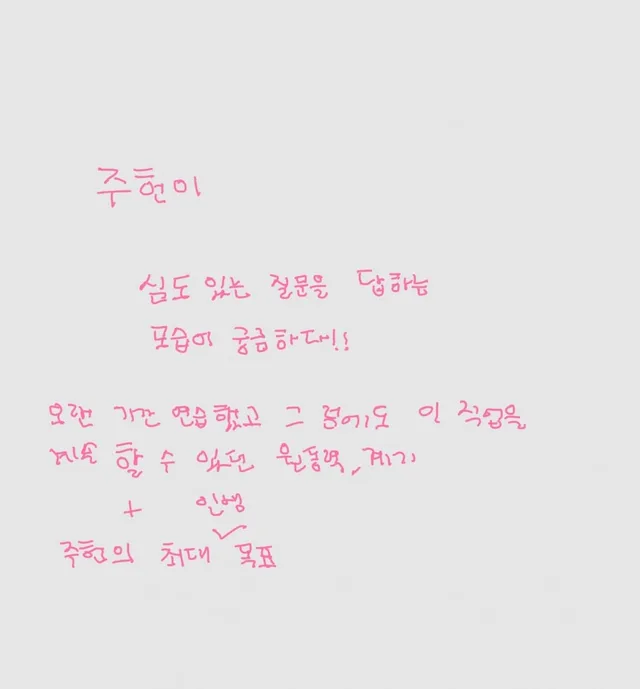 주헌이
심도 있는 질문을 답하는
모습이 궁금하대!!
오랜 기간 연습했고 그 럼에도 이 직업을
계속 할 수 있었던 원동력, 계기
+ 인생
주헌의 최대 ✓ 목표